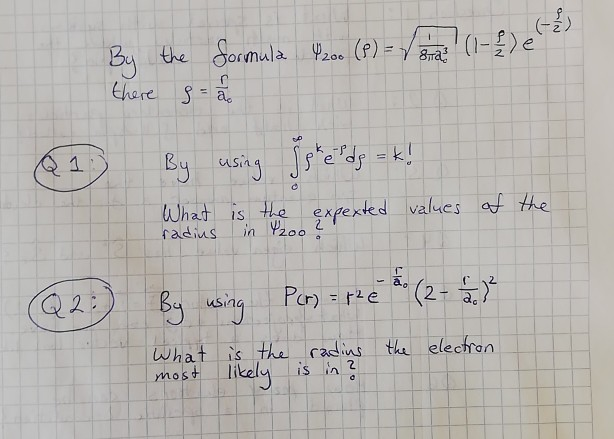 By the formula Ψ₂₀₀ (ρ) = √(1/8πa₀³) (1 - ρ/2) e^(-ρ/2)
there ρ = r/a₀
Q1: By using ∫₀^∞ ρ^k e^-ρ dρ = k!
What is the expexted values of the
radius in Ψ₂₀₀?
Q2: By using P(r) = r² e^(-r/a₀) (2 - r/a₀)²
What is the radius the electron
most likely is in?